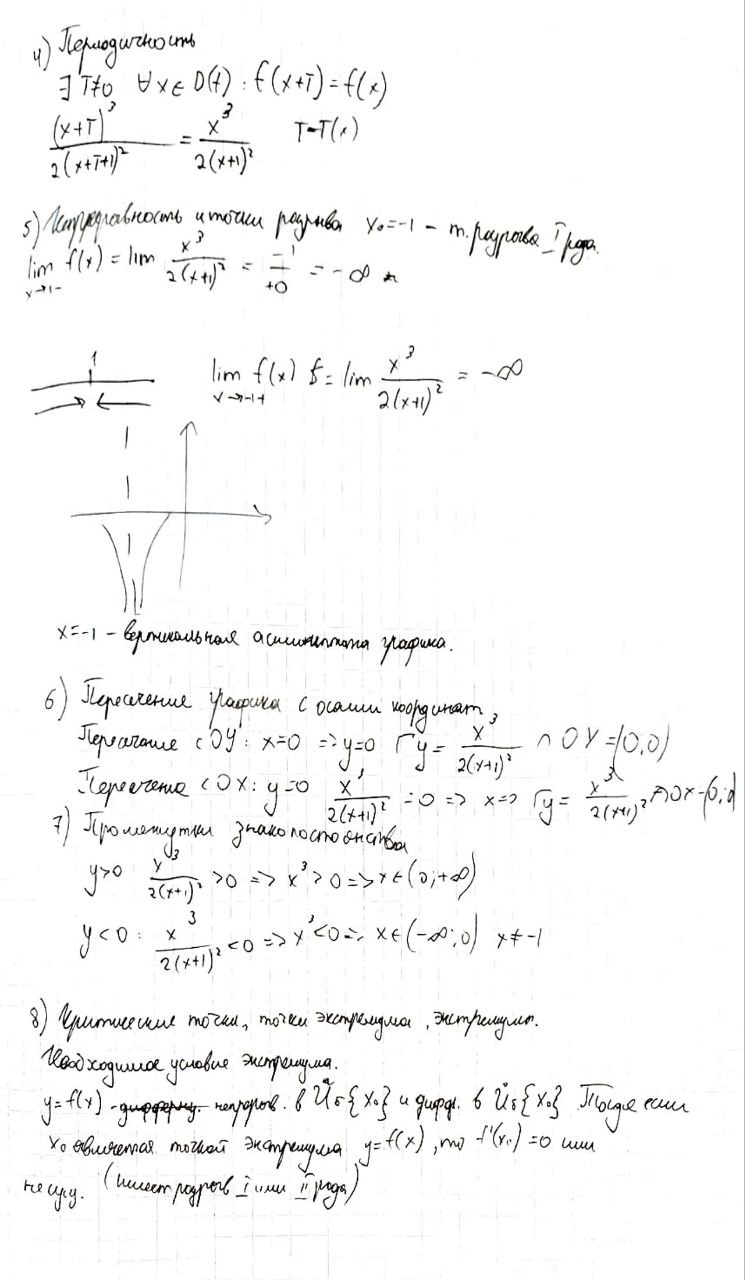 4) Периодичность
∃ T≠0 ∀x∈ D(f) : f(x+T)=f(x)
(x+T)³/2(x+T+1)² = x³/2(x+1)² T=T(x)
5) Непрерывность и точки разрыва x₀=-1 - т. разрыва I рода.
lim x→1- f(x) = lim x³/2(x+1)² = -1/+0 = -∞
1
lim x→-1+ f(x) = lim x³/2(x+1)² = -∞
x=-1 - вертикальная асимптота графика.
6) Пересечение графика с осями координат
Пересечение с OY: x=0 => y=0 Гy= x³/2(x+1)² ∩ OY =(0,0)
Пересечение с OX: y=0 x³/2(x+1)² =0 => x=> Гy= x³/2(x+1)² ∩OX-(0;
7) Промежутки знакопостоянства
y>0 x³/2(x+1)² >0 => x³>0 => x∈(0;+∞)
y<0 : x³/2(x+1)² <0 => x³<0 => x∈(-∞;0) x≠-1
8) Критические точки, точки экстремума, экстремумы.
Необходимое условие экстремума.
y=f(x) - непрерыв. в Uδ{x₀} и дифф. в U̇δ{x₀} Тогда если
x₀ является точкой экстремума y=f(x), то f'(x₀)=0 или
не сущ. (имеет разрыв I или II рода)